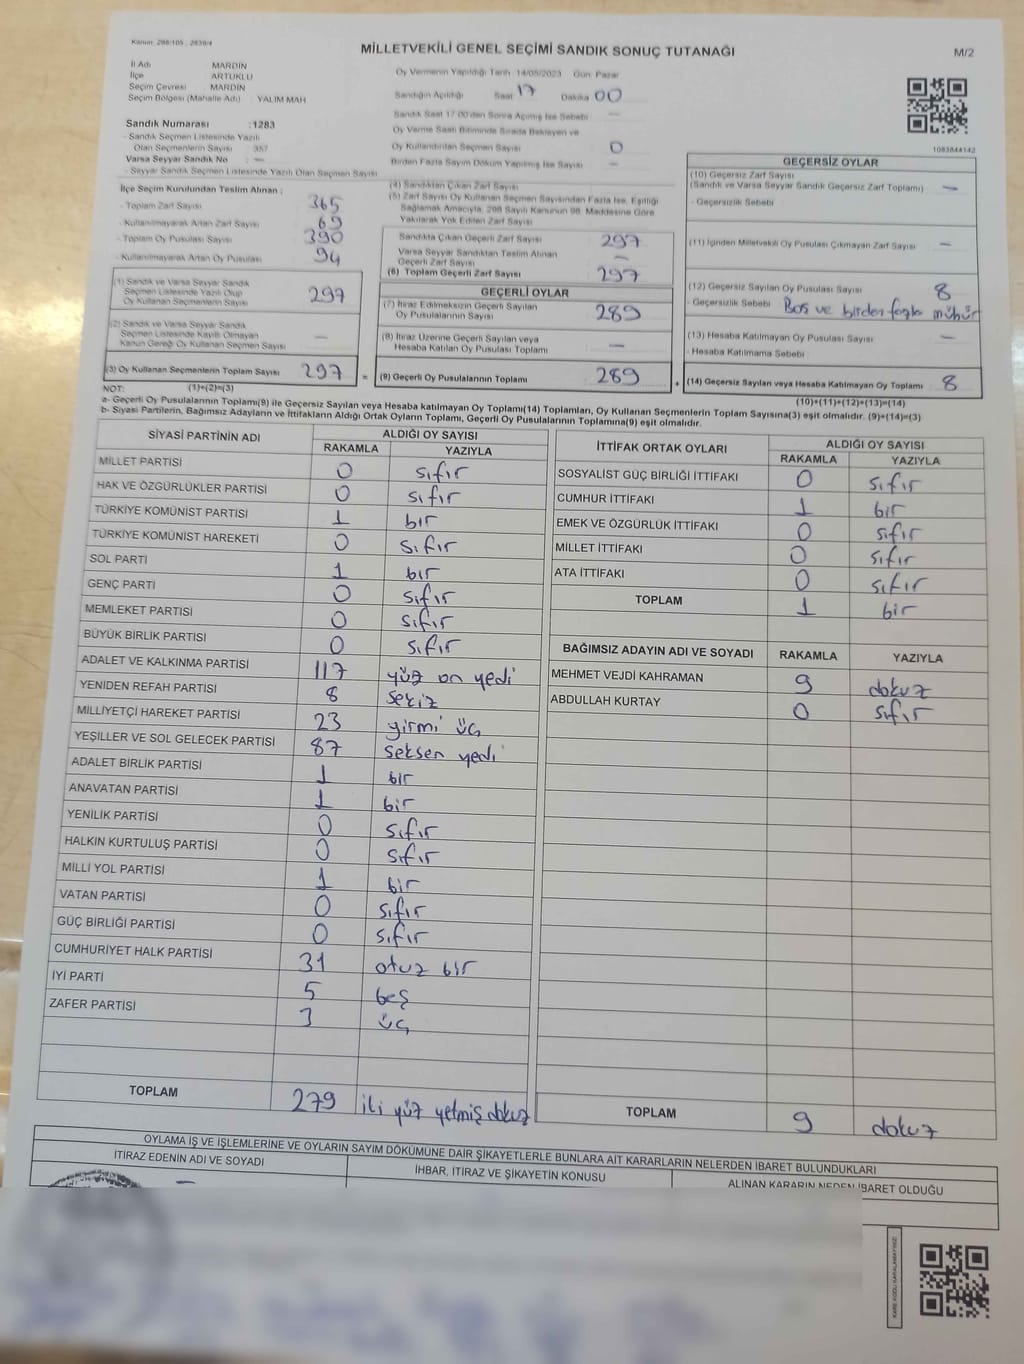 Kanun: 298/105 , 2839/4
MİLLETVEKİLİ GENEL SEÇİMİ SANDIK SONUÇ TUTANAĞI
M/2
İl Adı MARDİN
İlçe ARTUKLU
Seçim Çevresi MARDİN
Seçim Bölgesi (Mahalle Adı) YALIM MAH
Oy Vermenin Yapıldığı Tarih 14/05/2023 Gün Pazar
Sandığın Açıldığı Saat 17 Dakika 00
Sandık Saat 17:00'den Sonra Açılmış İse Sebebi —
Oy Verme Saati Bitiminde Sırada Bekleyen ve
Oy Kullandırılan Seçmen Sayısı 0
Birden Fazla Sayım Döküm Yapılmış İse Sayısı —
Sandık Numarası :1283
- Sandık Seçmen Listesinde Yazılı
Olan Seçmenlerin Sayısı 357
Varsa Seyyar Sandık No : —
- Seyyar Sandık Seçmen Listesinde Yazılı Olan Seçmen Sayısı
1083844142
İlçe Seçim Kurulundan Teslim Alınan :
- Toplam Zarf Sayısı 365
- Kullanılmayarak Artan Zarf Sayısı 69
- Toplam Oy Pusulası Sayısı 390
- Kullanılmayarak Artan Oy Pusulası 94
(1) Sandık ve Varsa Seyyar Sandık
Seçmen Listesinde Yazılı Olup
Oy Kullanan Seçmenlerin Sayısı 297
(2) Sandık ve Varsa Seyyar Sandık
Seçmen Listesinde Kayıtlı Olmayan
Kanun Gereği Oy Kullanan Seçmen Sayısı —
(3) Oy Kullanan Seçmenlerin Toplam Sayısı 297 =
(4) Sandıktan Çıkan Zarf Sayısı
(5) Zarf Sayısı Oy Kullanan Seçmen Sayısından Fazla İse, Eşitliği
Sağlamak Amacıyla, 298 Sayılı Kanunun 98. Maddesine Göre
Yakılarak Yok Edilen Zarf Sayısı
Sandıkta Çıkan Geçerli Zarf Sayısı 297
Varsa Seyyar Sandıktan Teslim Alınan
Geçerli Zarf Sayısı —
(6) Toplam Geçerli Zarf Sayısı 297
GEÇERLİ OYLAR
(7) İtiraz Edilmeksizin Geçerli Sayılan
Oy Pusulalarının Sayısı 289
(8) İtiraz Üzerine Geçerli Sayılan veya
Hesaba Katılan Oy Pusulası Toplamı —
(9) Geçerli Oy Pusulalarının Toplamı 289 +
GEÇERSİZ OYLAR
(10) Geçersiz Zarf Sayısı
(Sandık ve Varsa Seyyar Sandık Geçersiz Zarf Toplamı) —
- Geçersizlik Sebebi
(11) İçinden Milletvekili Oy Pusulası Çıkmayan Zarf Sayısı —
(12) Geçersiz Sayılan Oy Pusulası Sayısı 8
- Geçersizlik Sebebi Boş ve birden fazla mühür
(13) Hesaba Katılmayan Oy Pusulası Sayısı —
- Hesaba Katılmama Sebebi
(14) Geçersiz Sayılan veya Hesaba Katılmayan Oy Toplamı 8
NOT: (1)+(2)=(3)
(10)+(11)+(12)+(13)=(14)
a- Geçerli Oy Pusulalarının Toplamı(9) ile Geçersiz Sayılan veya Hesaba katılmayan Oy Toplamı(14) Toplamları, Oy Kullanan Seçmenlerin Toplam Sayısına(3) eşit olmalıdır. (9)+(14)=(3)
b- Siyasi Partilerin, Bağımsız Adayların ve İttifakların Aldığı Ortak Oyların Toplamı, Geçerli Oy Pusulalarının Toplamına(9) eşit olmalıdır.
SİYASİ PARTİNİN ADI ALDIĞI OY SAYISI
RAKAMLA YAZIYLA
MİLLET PARTİSİ 0 sıfır
HAK VE ÖZGÜRLÜKLER PARTİSİ 0 sıfır
TÜRKİYE KOMÜNİST PARTİSİ 1 bir
TÜRKİYE KOMÜNİST HAREKETİ 0 sıfır
SOL PARTİ 1 bir
GENÇ PARTİ 0 sıfır
MEMLEKET PARTİSİ 0 sıfır
BÜYÜK BİRLİK PARTİSİ 0 sıfır
ADALET VE KALKINMA PARTİSİ 117 yüz on yedi
YENİDEN REFAH PARTİSİ 8 sekiz
MİLLİYETÇİ HAREKET PARTİSİ 23 yirmi üç
YEŞİLLER VE SOL GELECEK PARTİSİ 87 seksen yedi
ADALET BİRLİK PARTİSİ 1 bir
ANAVATAN PARTİSİ 1 bir
YENİLİK PARTİSİ 0 sıfır
HALKIN KURTULUŞ PARTİSİ 0 sıfır
MİLLİ YOL PARTİSİ 1 bir
VATAN PARTİSİ 0 sıfır
GÜÇ BİRLİĞİ PARTİSİ 0 sıfır
CUMHURİYET HALK PARTİSİ 31 otuz bir
İYİ PARTİ 5 beş
ZAFER PARTİSİ 3 üç
TOPLAM 279 iki yüz yetmiş dokuz
İTTİFAK ORTAK OYLARI ALDIĞI OY SAYISI
RAKAMLA YAZIYLA
SOSYALİST GÜÇ BİRLİĞİ İTTİFAKI 0 sıfır
CUMHUR İTTİFAKI 1 bir
EMEK VE ÖZGÜRLÜK İTTİFAKI 0 sıfır
MİLLET İTTİFAKI 0 sıfır
ATA İTTİFAKI 0 sıfır
TOPLAM 1 bir
BAĞIMSIZ ADAYIN ADI VE SOYADI RAKAMLA YAZIYLA
MEHMET VEJDİ KAHRAMAN 9 dokuz
ABDULLAH KURTAY 0 sıfır
TOPLAM 9 dokuz
OYLAMA İŞ VE İŞLEMLERİNE VE OYLARIN SAYIM DÖKÜMÜNE DAİR ŞİKAYETLERLE BUNLARA AİT KARARLARIN NELERDEN İBARET BULUNDUKLARI
İTİRAZ EDENİN ADI VE SOYADI İHBAR, İTİRAZ VE ŞİKAYETİN KONUSU ALINAN KARARIN NEDEN İBARET OLDUĞU
—
KARE KODU KARALAMAYINIZ!